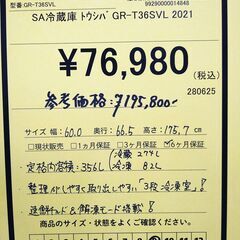 型番:GR-T36SVL
99290000014848
SA冷蔵庫 トウシバ GR-T36SVL 2021
¥76,980
(税込)
280625
参考価格:¥195,800-
サイズ 幅:60.0 奥行:66.5 高さ:175.7 cm
□現状販売 □1ヵ月保証 □3ヵ月保証 ☑6ヶ月保証
・定格内容積:356L (冷蔵 274L
冷凍 82L
・整理がしやすく取り出しやすい「3段冷凍室」!
・速鮮チルド&解凍モード搭載!
商品の状態・保証についてはご確認ください